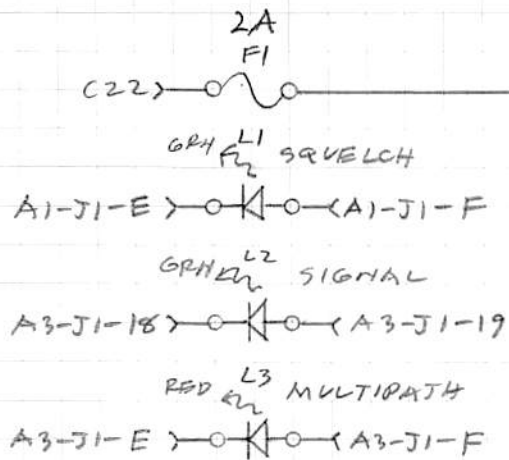 2A
F1
C22
GRN L1 SQUELCH
A1-J1-E A1-J1-F
GRN L2 SIGNAL
A3-J1-18 A3-J1-19
RED L3 MULTIPATH
A3-J1-E A3-J1-F